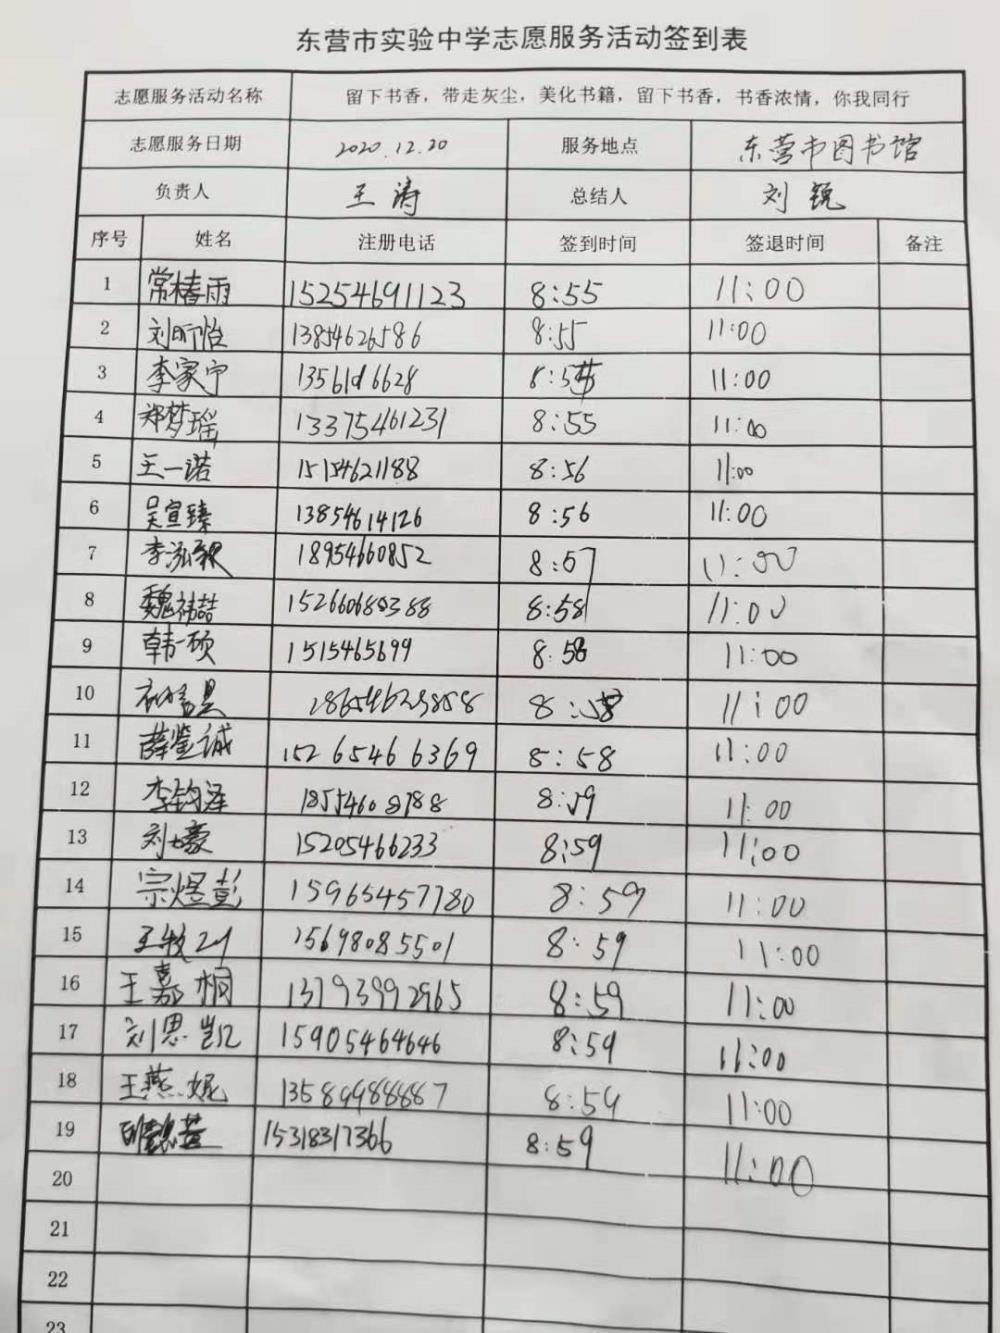 东营市实验中学志愿服务活动签到表
志愿服务活动名称 留下书香，带走灰尘，美化书籍，留下书香，书香浓情，你我同行
志愿服务日期 2020.12.20 服务地点 东营市图书馆
负责人 王涛 总结人 刘锐
序号 姓名 注册电话 签到时间 签退时间 备注
1 常椿雨 15254691123 8:55 11:00
2 刘昕怡 13854626586 8:55 11:00
3 李家宁 8:55 11:00
4 郑梦瑶 13375461231 8:55 11:00
5 王一诺 15154621188 8:56 11:00
6 吴宣臻 13854614126 8:56 11:00
7 18954660852 8:57 11:00
8 魏祎喆 15266068388 8:58 11:00
9 韩一硕 1515465699 8:58 11:00
10 8:58 11:00
11 薛鉴诚 15265466369 8:58 11:00
12 李钧泽 18554608788 8:59 11:00
13 15205466233 8:59 11:00
14 宗煜彭 15965457780 8:59 11:00
15 15698085501 8:59 11:00
16 王嘉桐 13793992965 8:59 11:00
17 刘思凯 15905464646 8:59 11:00
18 王燕妮 13589988887 8:59 11:00
19 15318317366 8:59 11:00
20
21
22
23